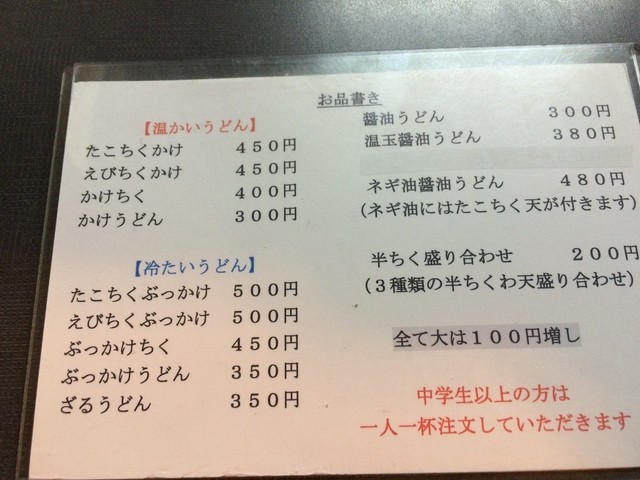 お品書き
【温かいうどん】
たこちくかけ ４５０円
えびちくかけ ４５０円
かけちく ４００円
かけうどん ３００円
【冷たいうどん】
たこちくぶっかけ ５００円
えびちくぶっかけ ５００円
ぶっかけちく ４５０円
ぶっかけうどん ３５０円
ざるうどん ３５０円
醤油うどん ３００円
温玉醤油うどん ３８０円
ネギ油醤油うどん ４８０円
（ネギ油にはたこちく天が付きます）
半ちく盛り合わせ ２００円
（３種類の半ちくわ天盛り合わせ）
全て大は１００円増し
中学生以上の方は
一人一杯注文していただきます